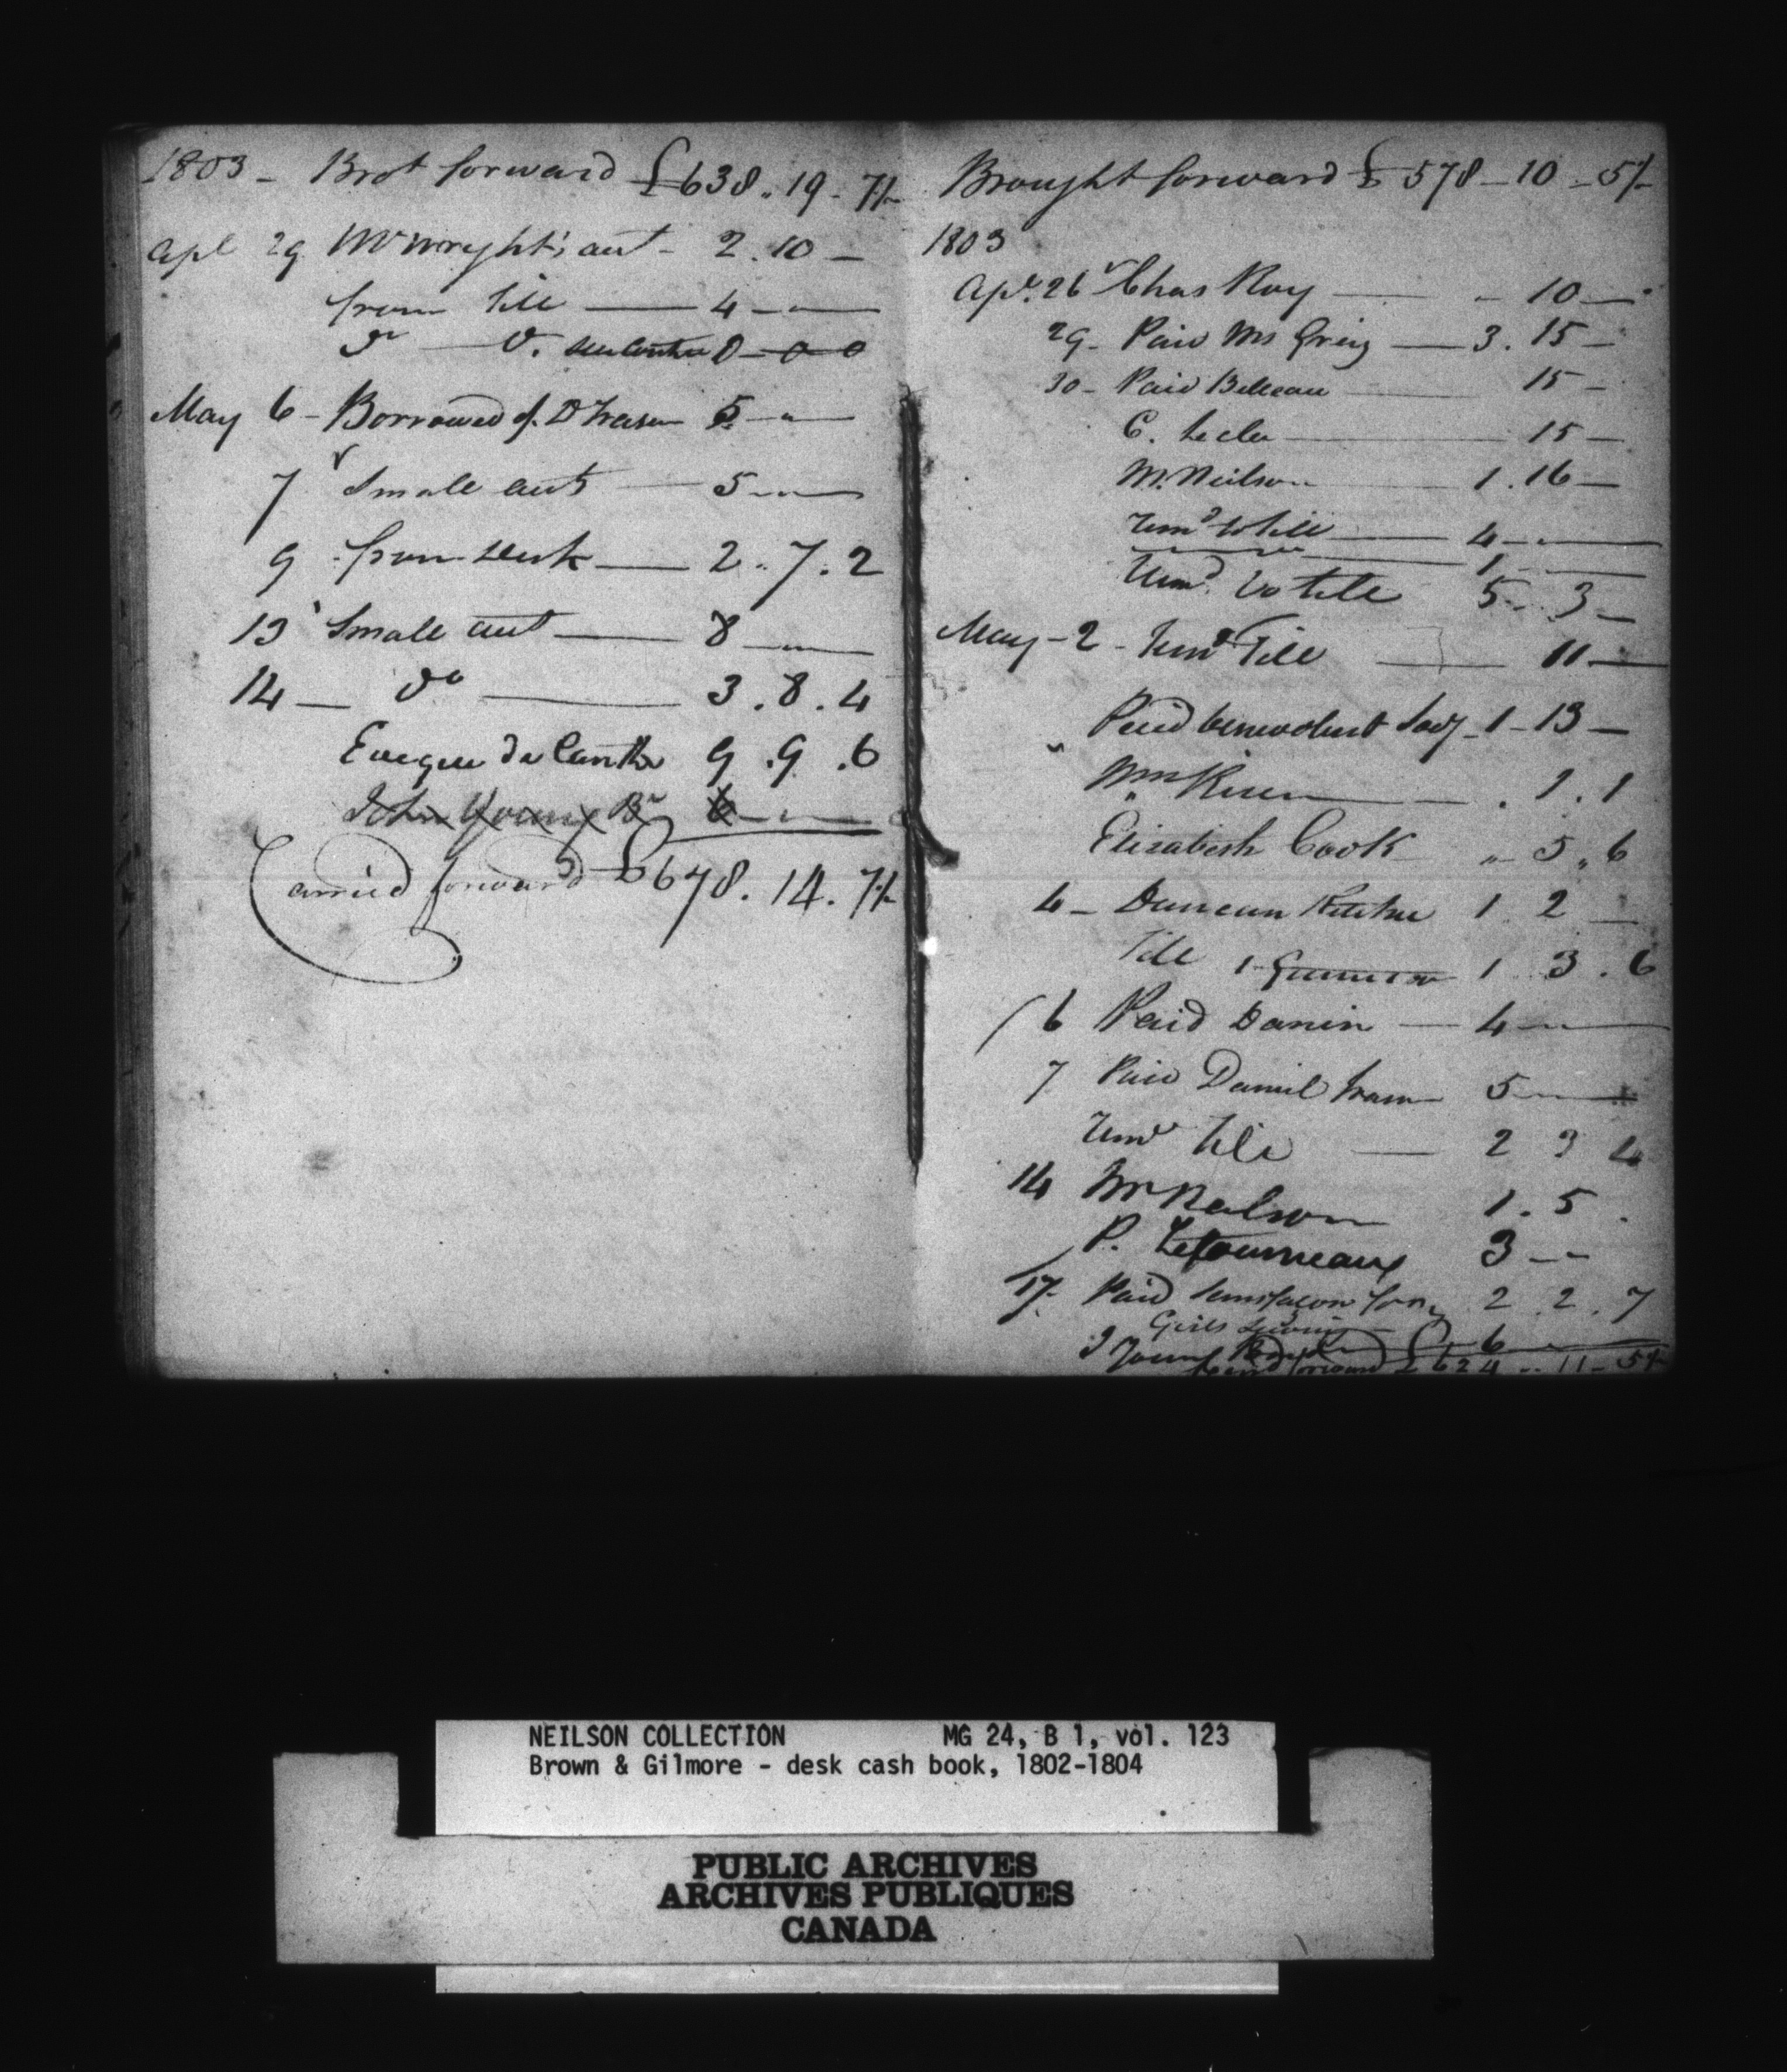 1803 - Brot forward £638 .. 19 - 7½
Apl 29 Mr Wright's aut - 2 . 10 -
from Till 4 - " -
Do Do 0 - 0 0
May 6 - Borrowed of D Fraser 5 - " -
7 Small auts 5 - " -
9 from Desk 2 .. 7 . 2
13 Small aut 8 - " -
14 - Do 3 . 8 . 4
Eveque de Canthe 9 . 9 . 6
John Young Br 6 - " -
Carried forward £678 . 14 . 7½
Brought forward £578 - 10 - 5½
1803
Apr. 26 Chas Roy - 10 -
29 - Paid Ms Greig 3 . 15 -
30 - Paid Beleau 15 -
C. 15 -
M. Neilson 1 . 16 -
4 - " -
1 -
to till 5 .. 3 -
May - 2 - Till 11 -
Paid benevolent Socy - 1 - 13 -
Wm . 1 . 1
Elisabeth Cook " 5 " 6
4 - Duncan Ritchie 1 2 -
Till 1 1 3 . 6
6 Paid Danin 4 - " -
7 Paid Daniel Fraser 5 - " -
Till 2 3 4
14 Mr Nelson 1 . 5 .
P. Letourneaux 3 - -
17 Paid 2 . 2 . 7
Girls
J Young 6 - " -
Carrd forward £624 .. 11 - 5½
NEILSON COLLECTION MG 24, B 1, vol. 123
Brown & Gilmore - desk cash book, 1802-1804
PUBLIC ARCHIVES
ARCHIVES PUBLIQUES
CANADA